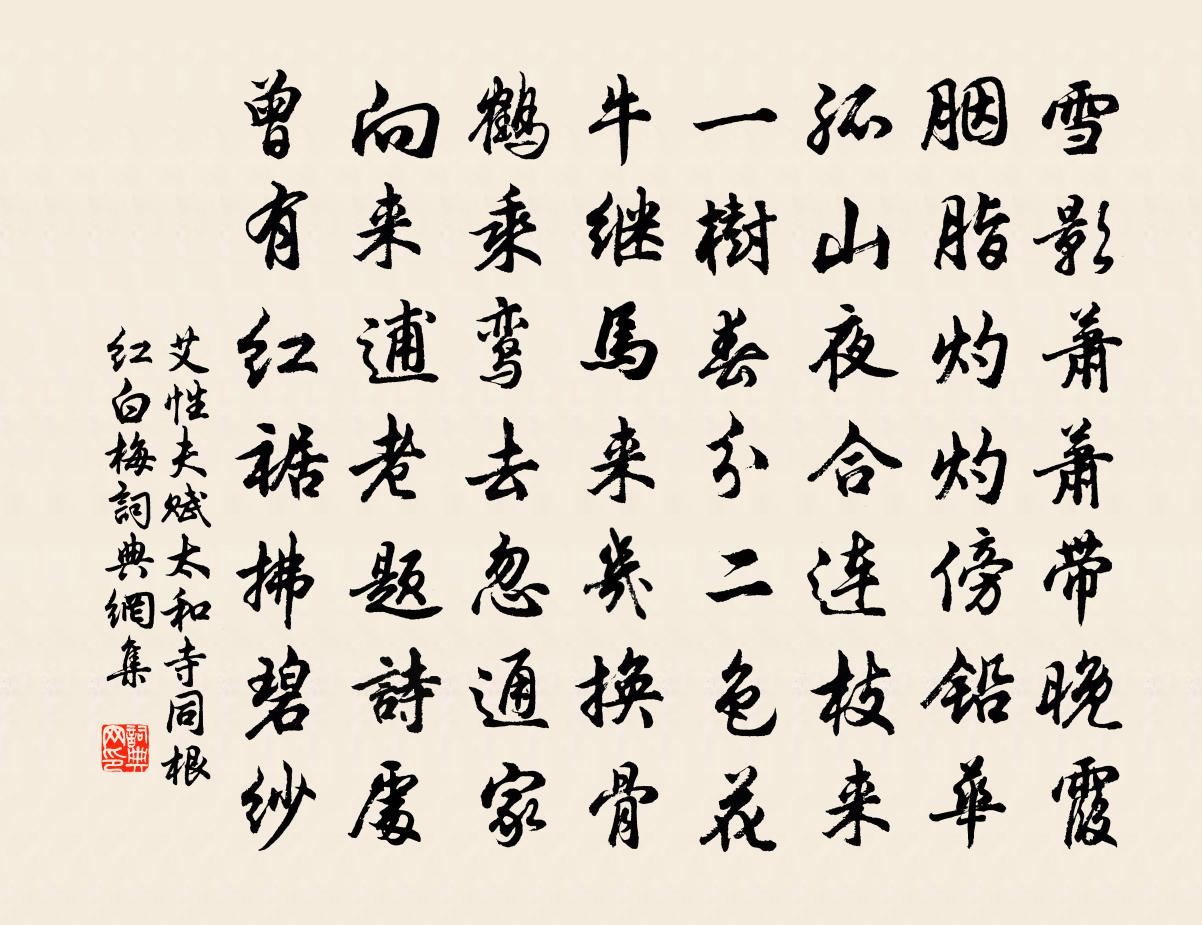 雪影萧萧带晚霞
胭脂灼灼傍铅華
孤山夜合连枝来
一樹春分二色花
牛继馬来幾换骨
鶴乘鸾去忽通家
向来逋老题詩處
曾有红裾拂碧纱
艾性夫赋太和寺同根
红白梅詞典網集
詞典网印